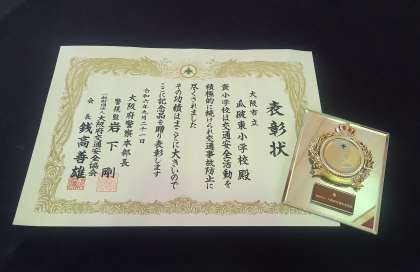 表彰状
大阪市立
瓜破東小学校 殿
貴小学校は交通安全活動を
積極的に続けられ交通事故防止に
尽くされました
その功績はまことに大きいので
ここに記念品を贈り表彰します
令和六年九月二十一日
大阪府警察本部長
警視監 岩下 剛
一般財団法人大阪府交通安全協会
会長 錢高善雄